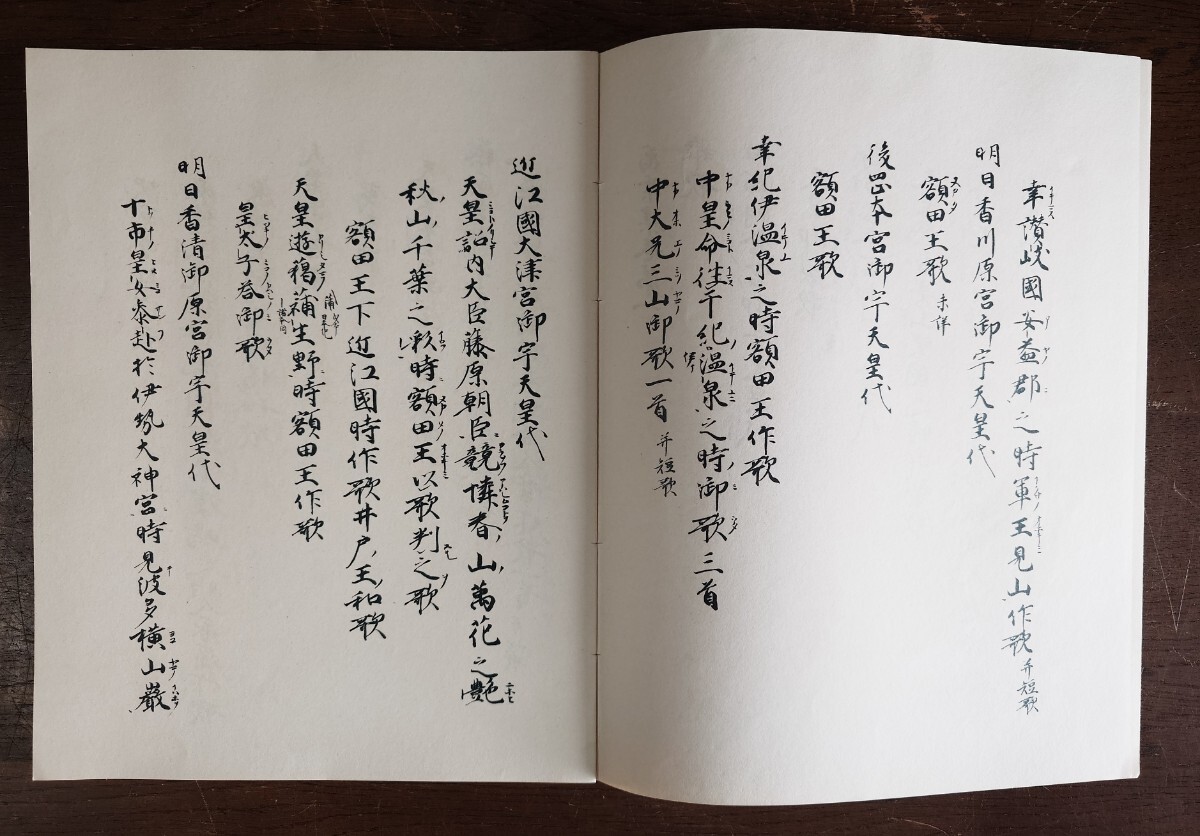 幸讃岐國安益郡之時軍王見山作歌 并短歌
明日香川原宮御宇天皇代
額田王歌 未詳
後岡本宮御宇天皇代
額田王歌
幸紀伊温泉之時額田王作歌
中皇命往于紀温泉之時御歌三首
中大兄三山御歌一首 并短歌
近江國大津宮御宇天皇代
天皇詔内大臣藤原朝臣競憐春山萬花之艶
秋山千葉之彩時額田王以歌判之歌
額田王下近江國時作歌井戸王和歌
天皇遊猟蒲生野時額田王作歌
皇太子答御歌
明日香清御原宮御宇天皇代
十市皇女参赴於伊勢大神宮時見波多横山巌